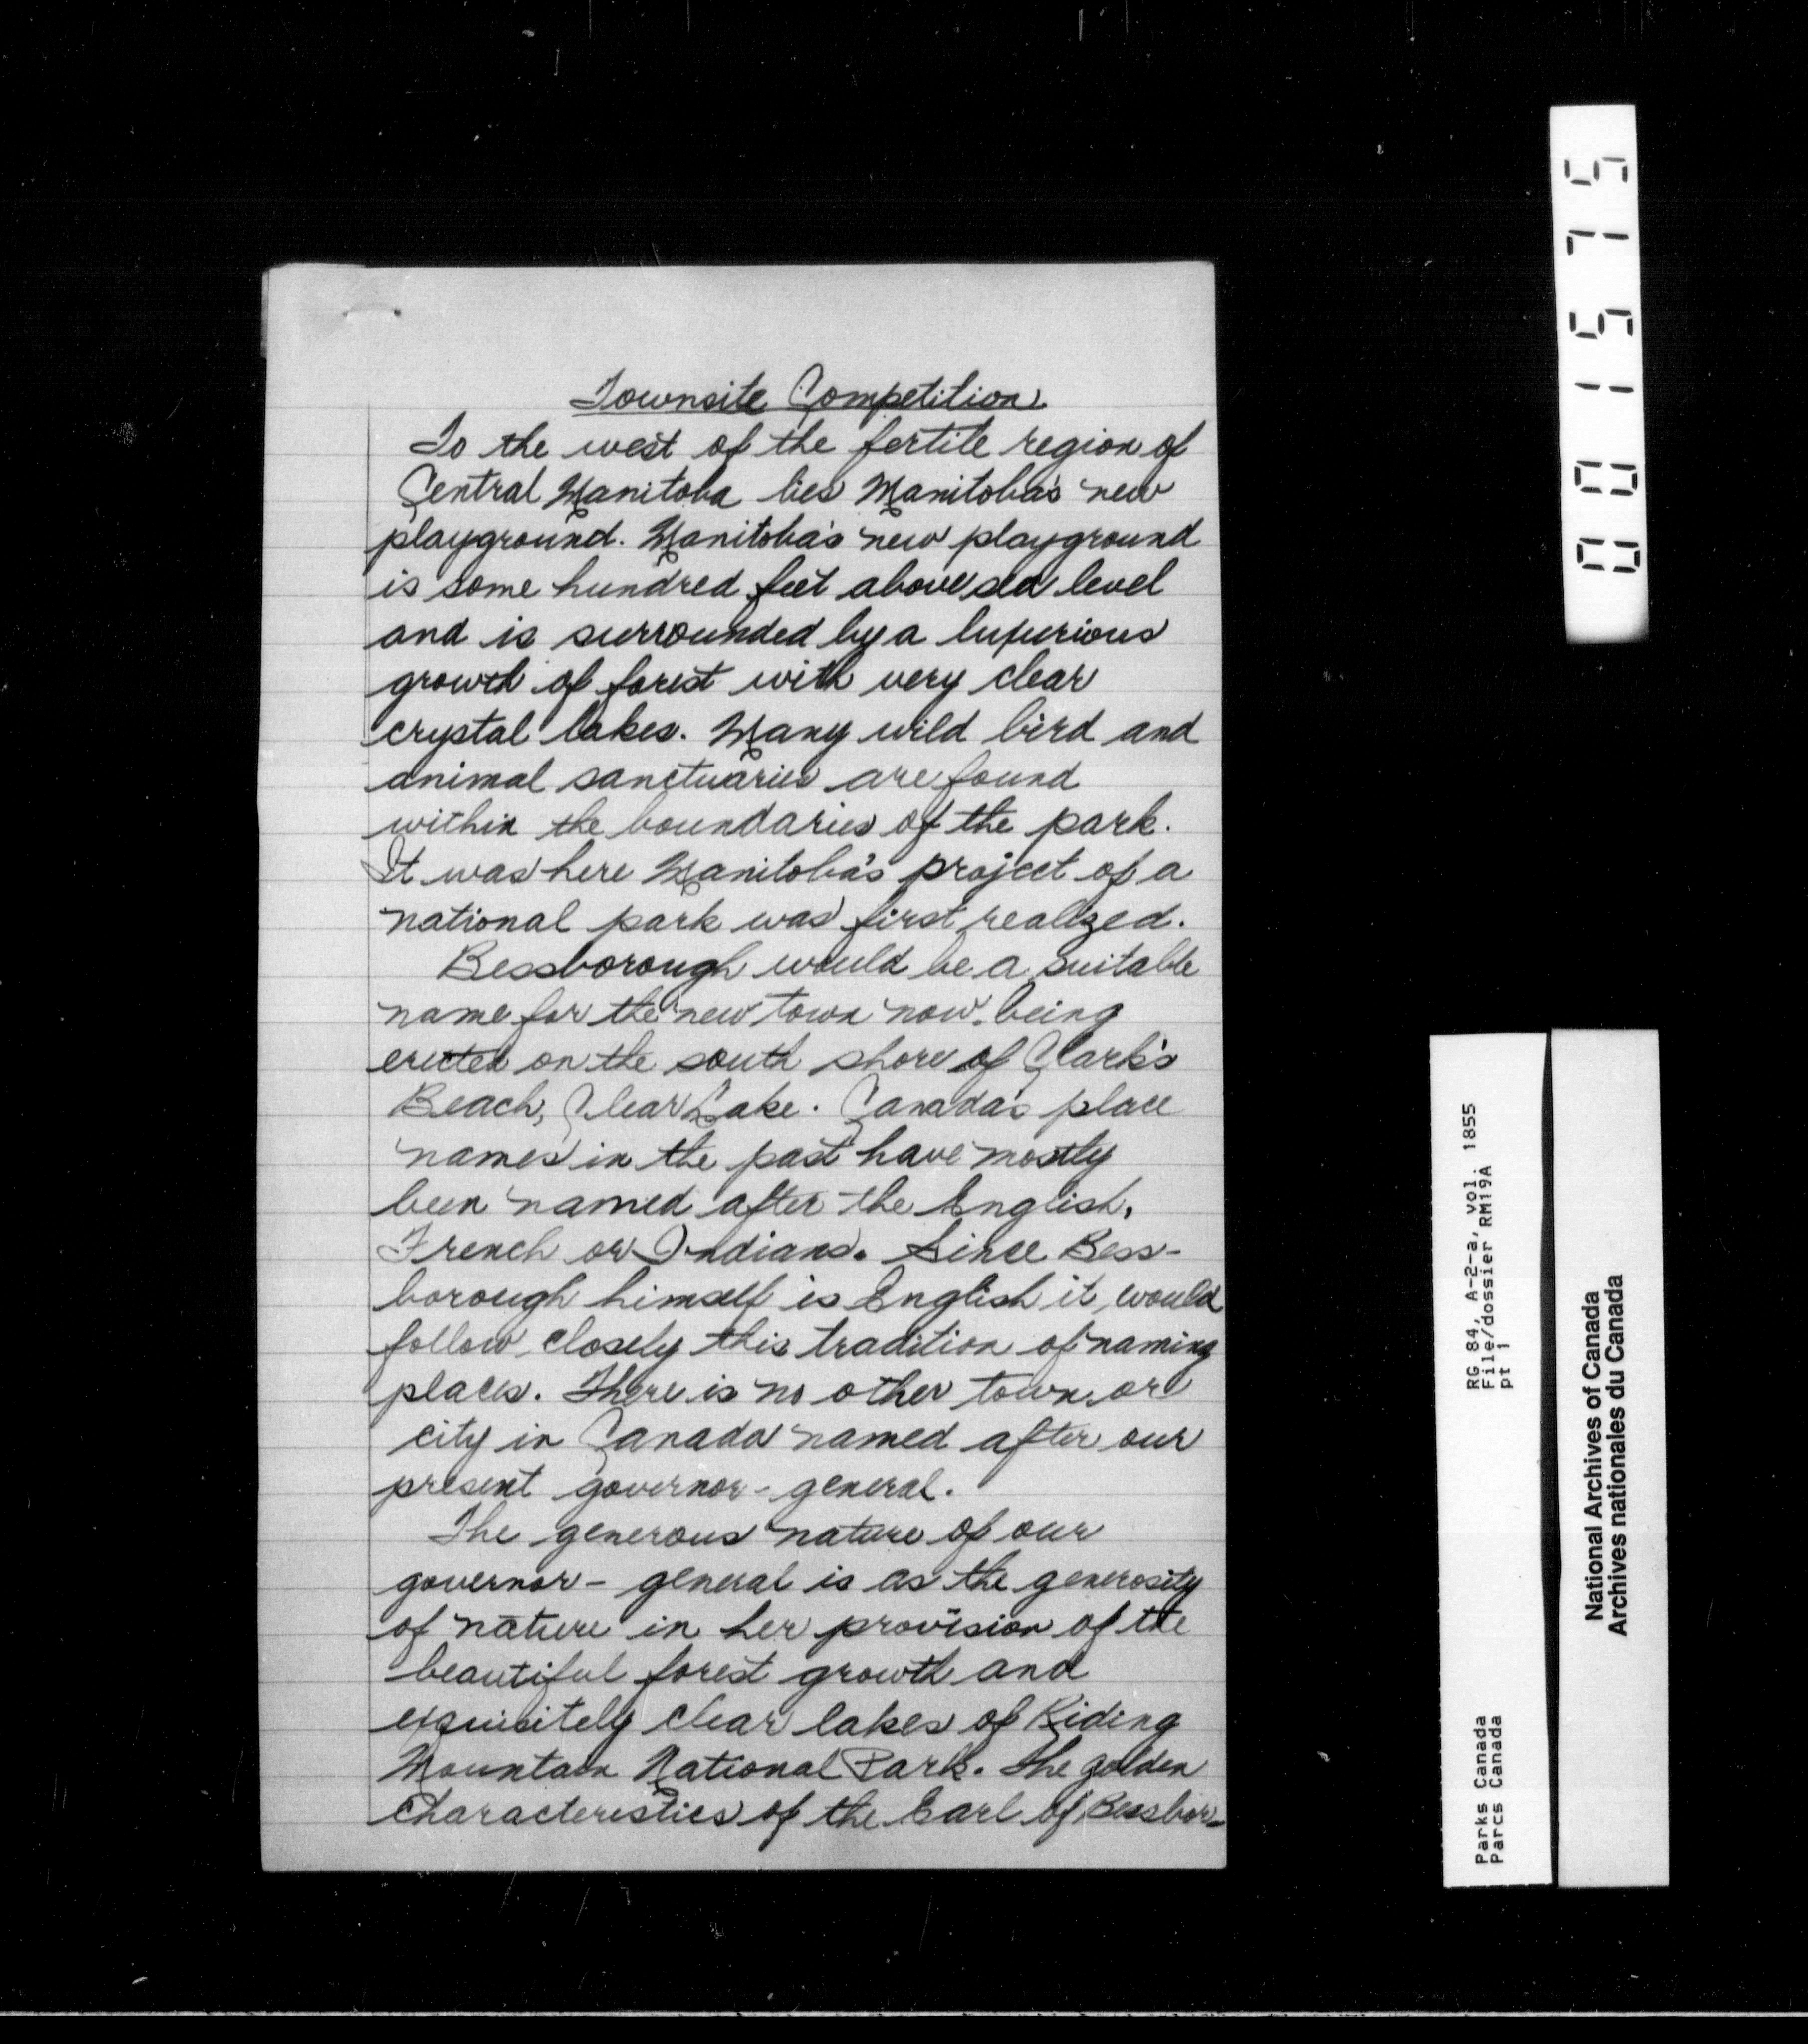 Townsite Competition
To the west of the fertile region of
Central Manitoba lies Manitoba's new
playground. Manitoba's new playground
is some hundred feet above sea level
and is surrounded by a luxurious
growth of forest with very clear
crystal lakes. Many wild bird and
animal sanctuaries are found
within the boundaries of the park.
It was here Manitoba's project of a
national park was first realized.
Bessborough would be a suitable
name for the new town now being
erected on the south shore of Clark's
Beach, Clear Lake. Canada's place
names in the past have mostly
been named after the English,
French or Indians. Since Bess-
borough himself is English it would
follow closely this tradition of naming
places. There is no other town or
city in Canada named after our
present governor-general.
The generous nature of our
governor-general is as the generosity
of nature in her provision of the
beautiful forest growth and
exquisitely clear lakes of Riding
Mountain National Park. The golden
characteristics of the Earl of Bessbor-
001575
RG 84, A-2-a, vol. 1855
File/dossier RM19A
pt 1
Parks Canada
Parcs Canada
National Archives of Canada
Archives nationales du Canada